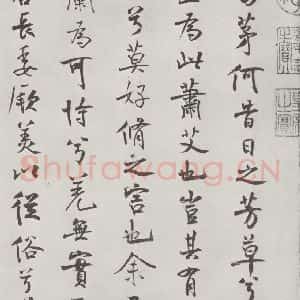 茅何昔日之芳草兮
為此蕭艾也豈其有
兮莫好脩之害也余
蘭為可恃兮羌無實
長委厥美以從俗兮
Shufawang.CN